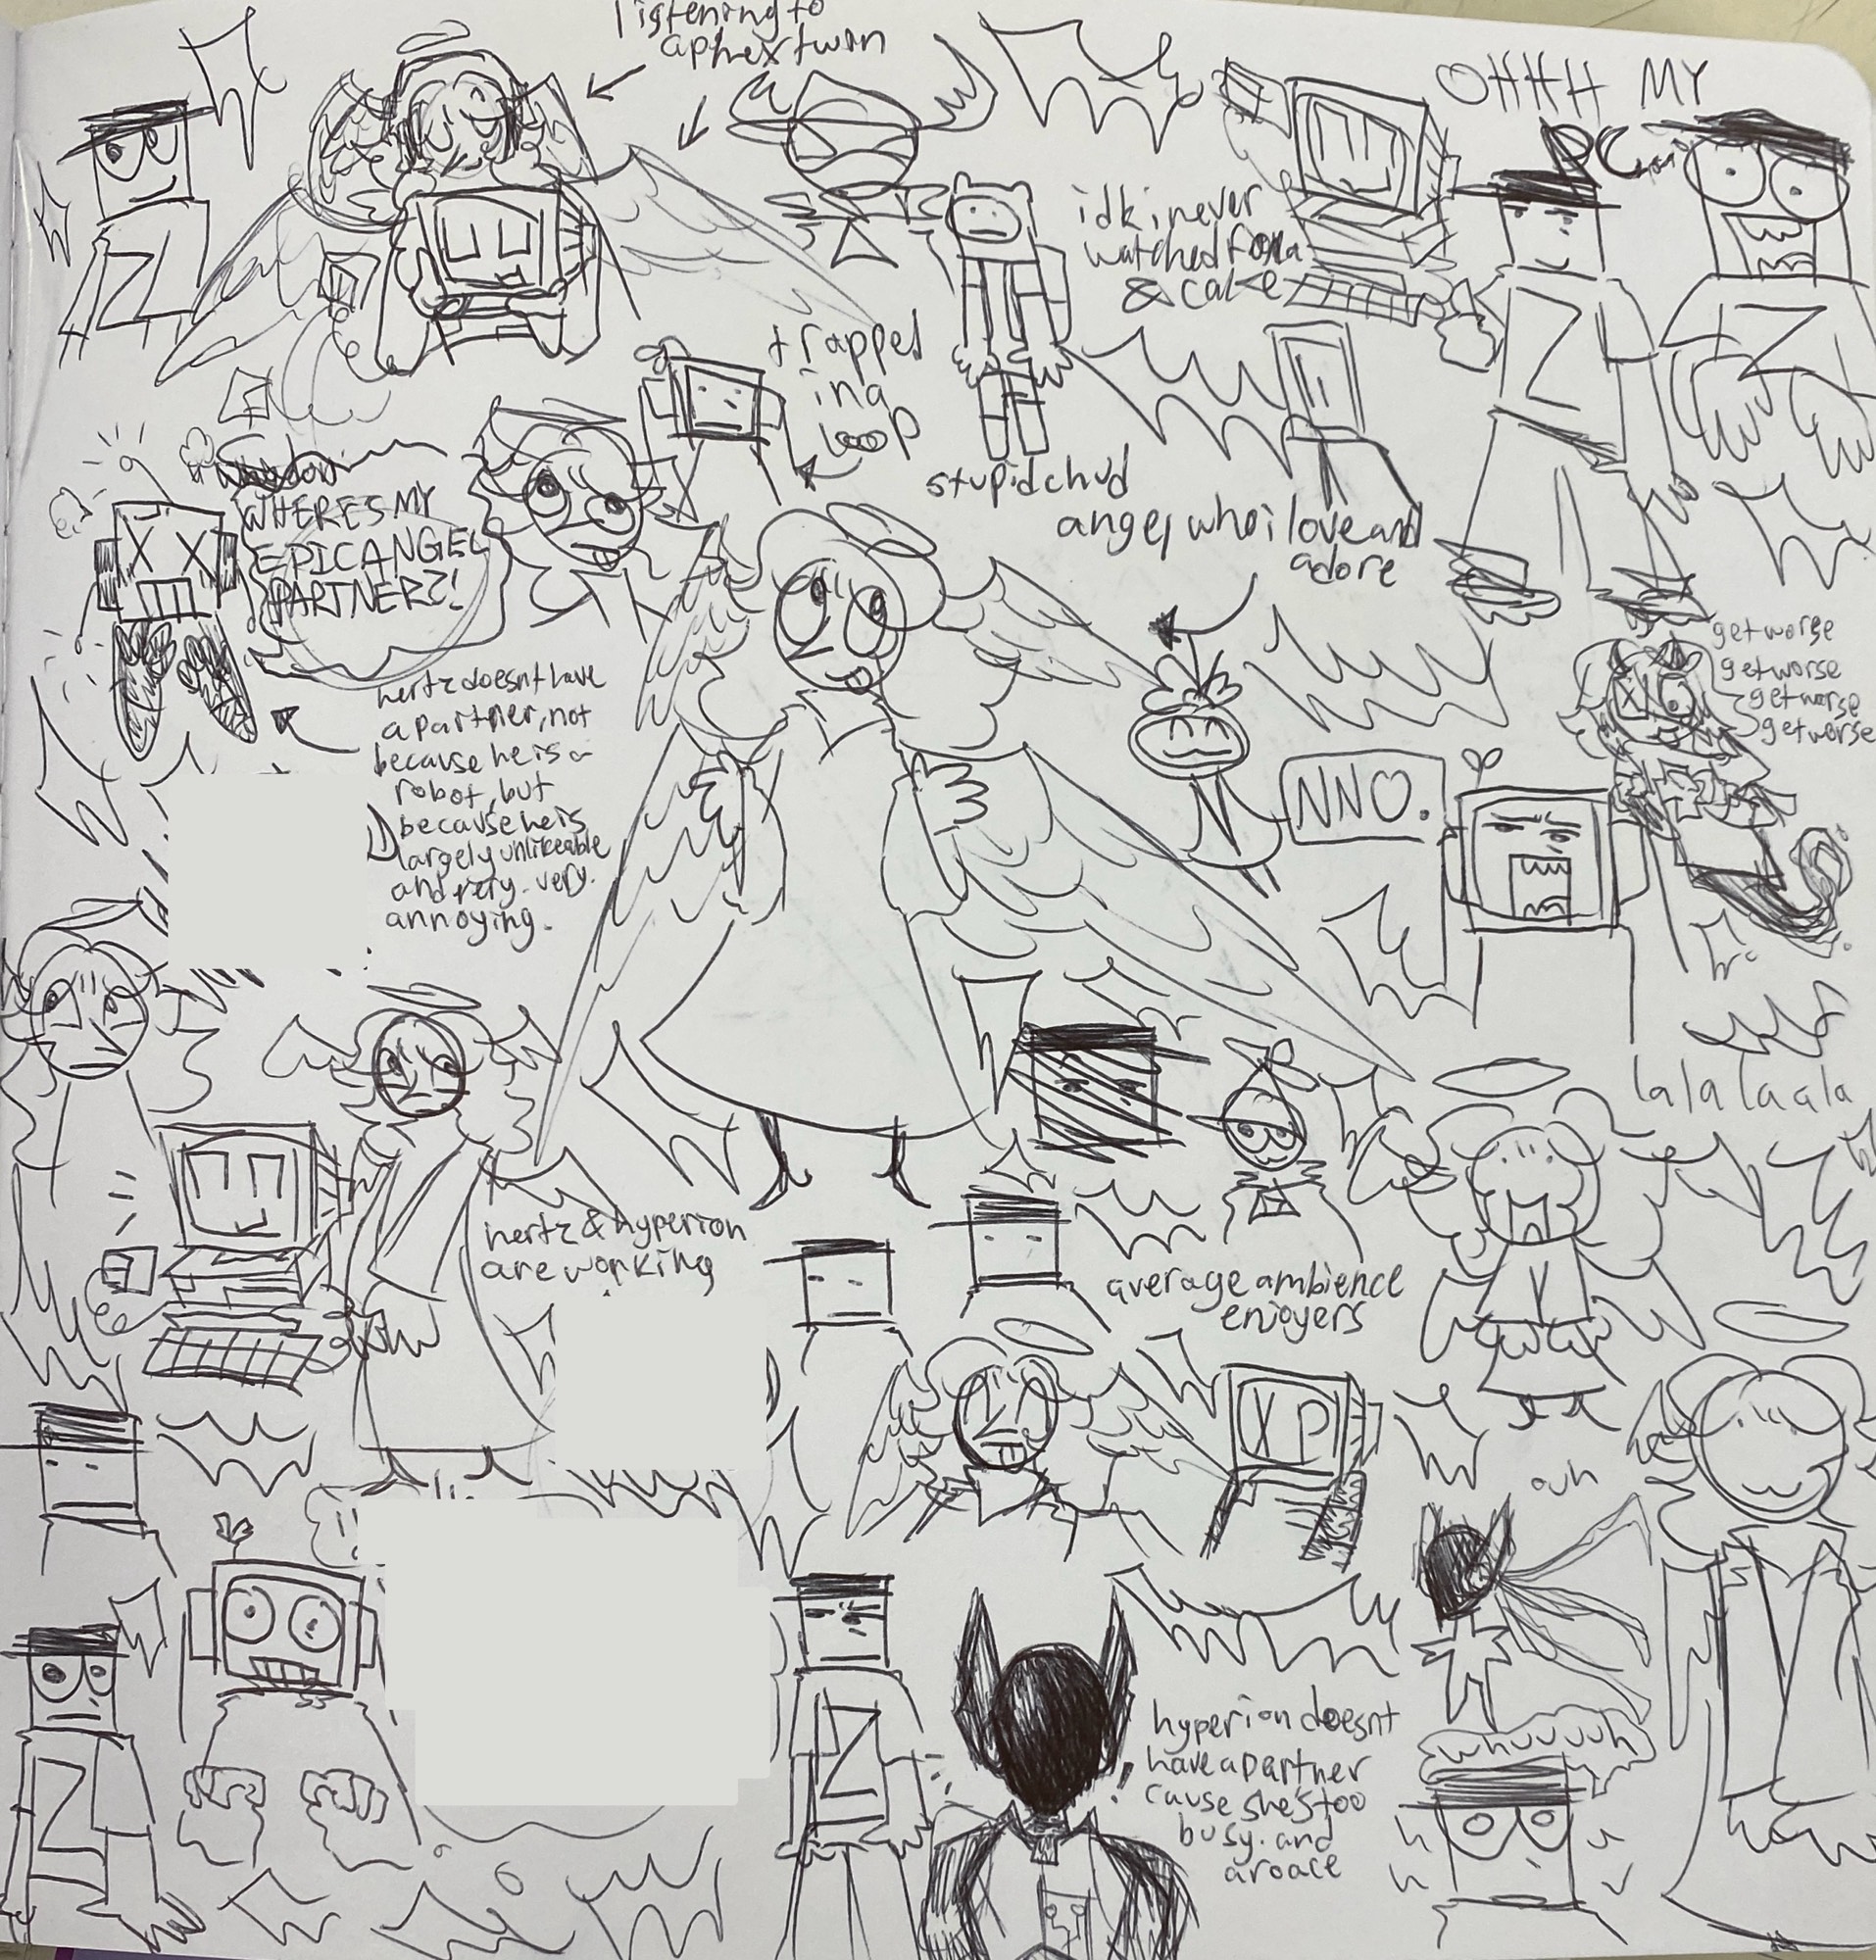 listening to
aphex twin
OHHH MY
idk i never
watched fionna
& cake
trapped
in a
loop
stupid chud
angel who i love and
adore
WHERE'S MY
EPIC ANGEL
PARTNER?!
hertz doesnt have
a partner, not
because he is a
robot, but
because he is
largely unlikeable
and very. very.
annoying.
get worse
get worse
get worse
get worse
NNO.
lalalaala
hertz & hyperion
are working
average ambience
enjoyers
XP
ouh
hyperion doesnt
have a partner
cause she's too
busy. and
aroace
whuuuuh
Z
Z
Z
Z
Z